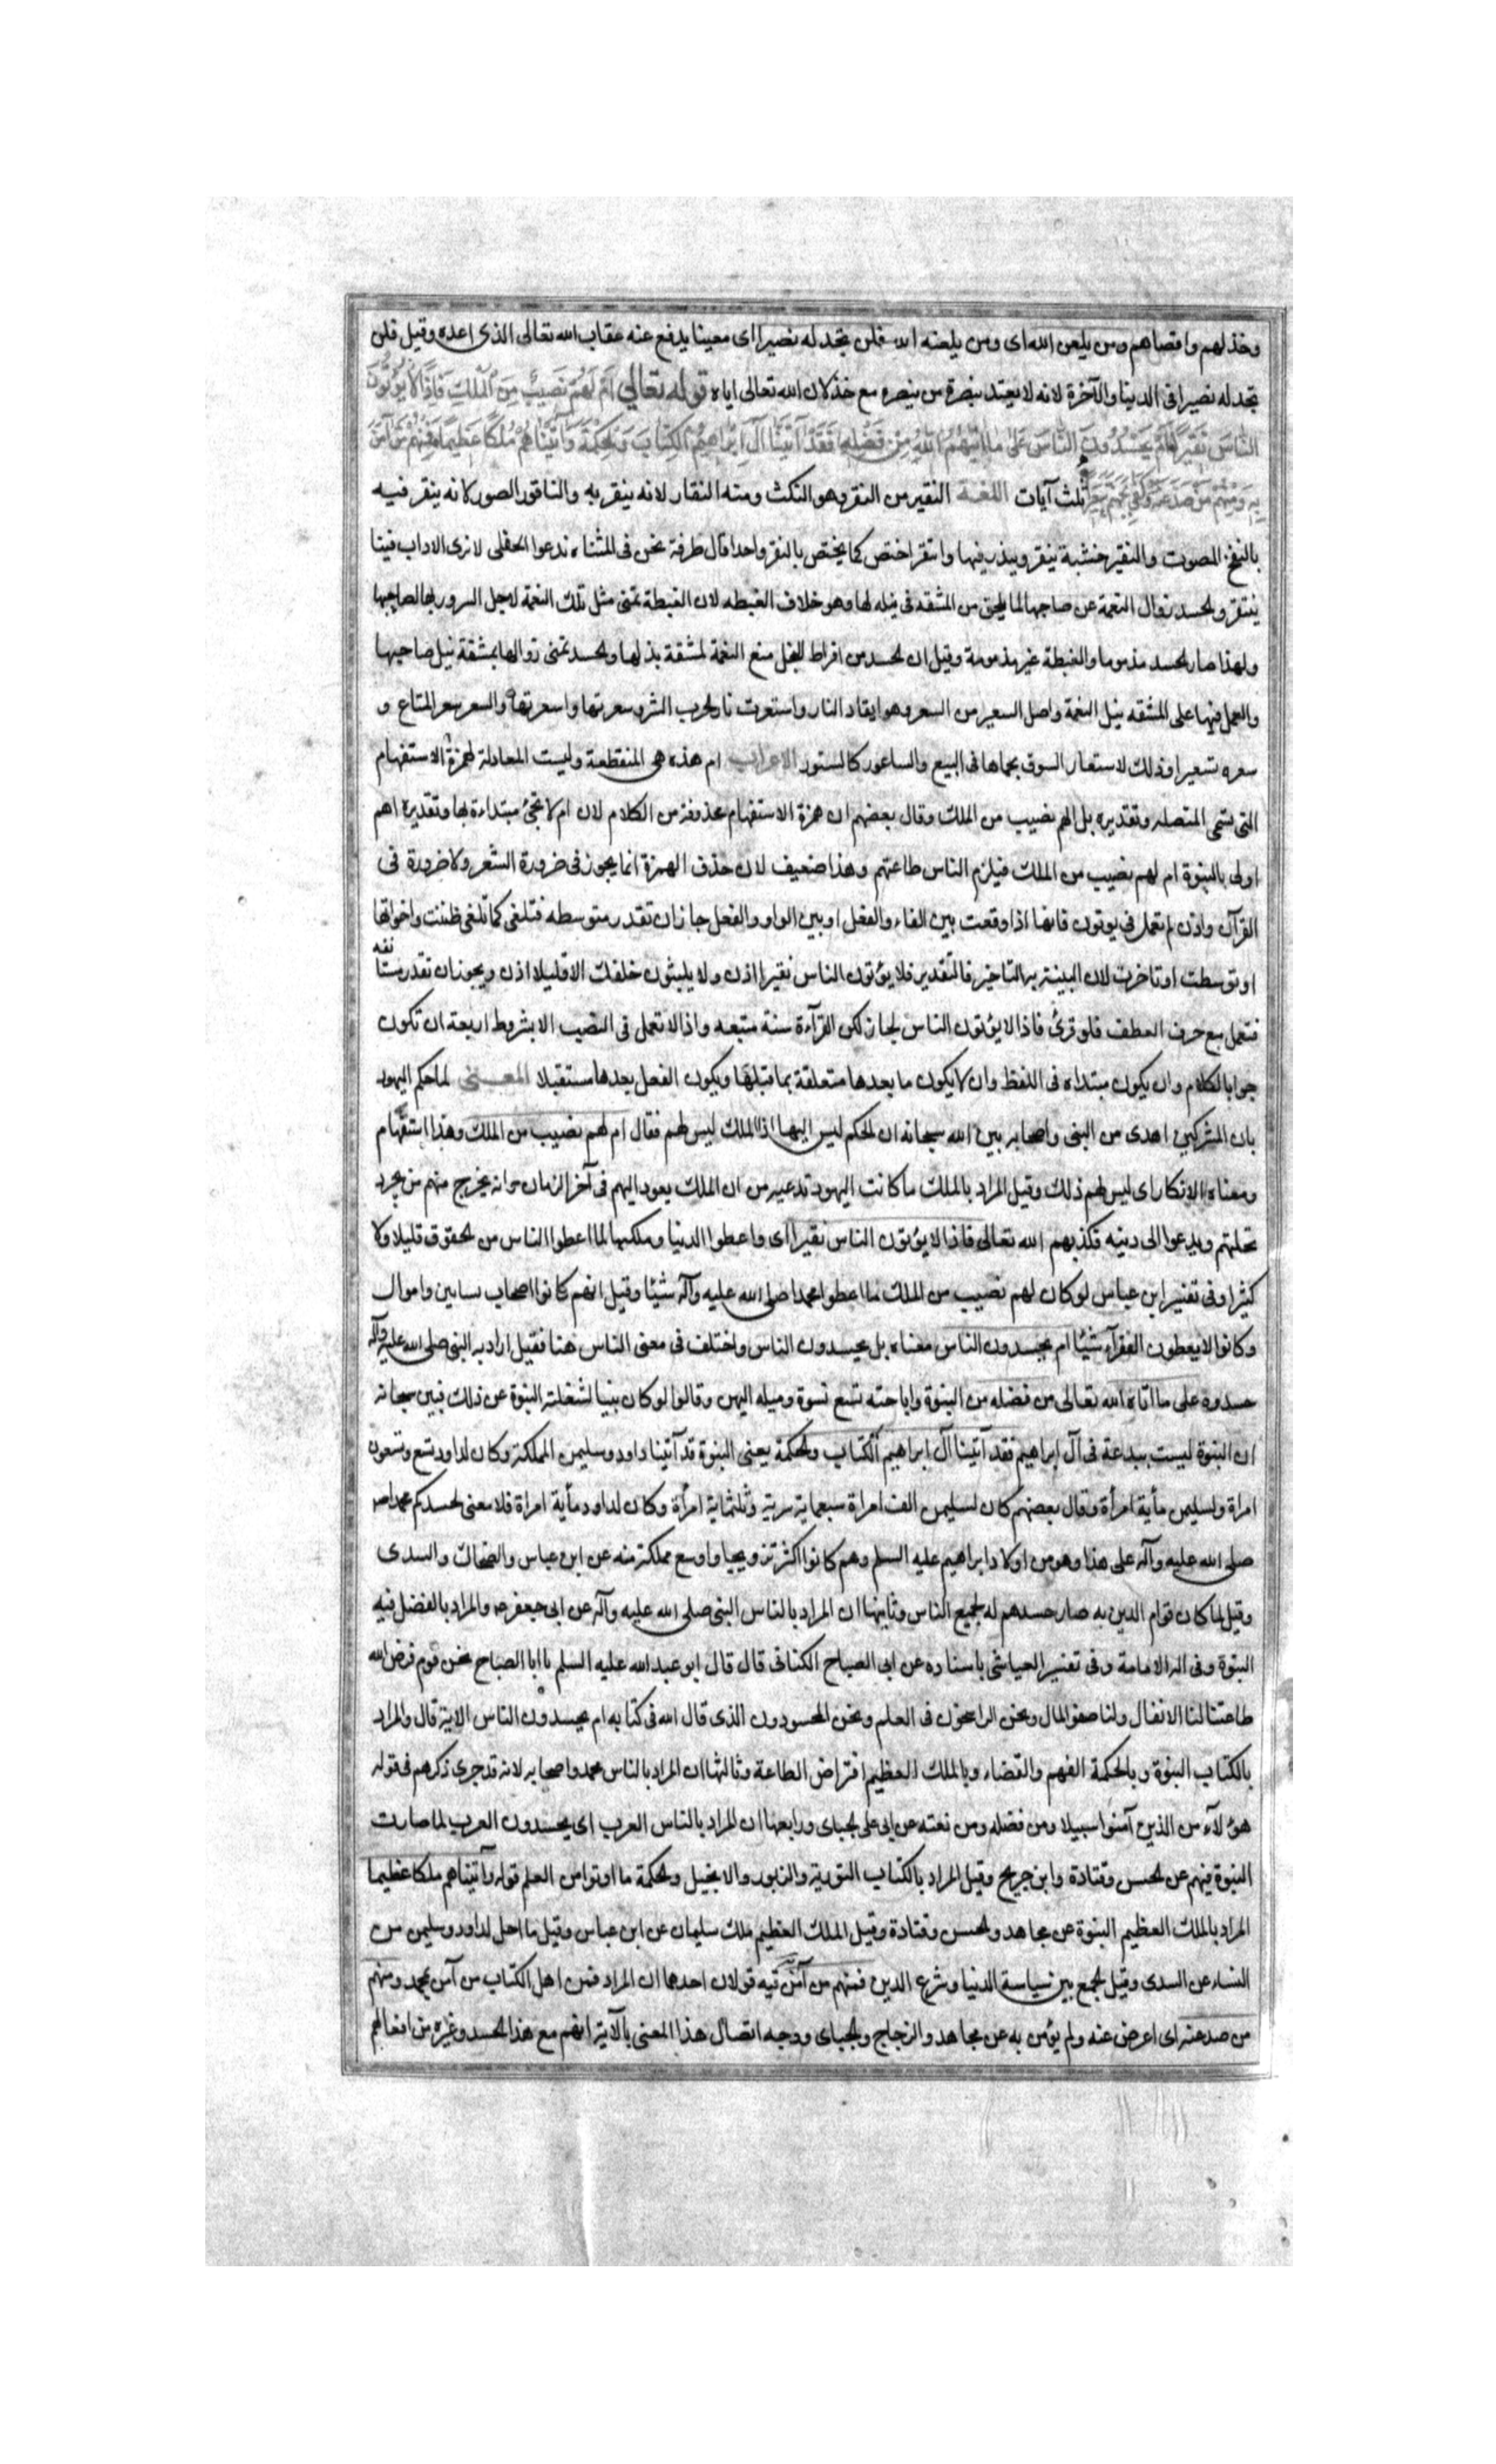 وخذلهم واقصاهم ومن يلعن الله اى ومن يلعنه الله فلن تجد له نصيرا اى معينا يدفع عنه عقاب الله تعالى الذى اعده وقيل فلن
تجد له نصيرا فى الدينا والآخرة لانه لا يعتد بنصرة من ينصره مع خذلان الله تعالى اياه قوله تعالي اَمْ لَهُمْ نَصَيبٌ مِنَ الْمُلْكِ فَاِذًا لَا يُؤْتُونَ
النَّاسَ نَقيرًا اَمْ يَحْسُدُونَ النَّاسَ عَلى ما اتيهُمُ اللهُ مِنْ فَضْلِهِ فَقَدْ آتَيْنَا آلَ اِبْراهيمَ الْكِتابَ وَالحِكْمَةَ وَآتَيْنَاهُمْ مُلْكًا عَظيمًا فَمِنْهُمْ مَنْ آمَنَ
بِهِ وَمِنْهُمْ مَنْ صَدَّ عَنْهُ وَكَفى بِجَهَنَّمَ سَعيرًا ثلث آيات اللغة النقير من النقر وهو النكث ومنه النقار لانه ينقر به والناقور الصور كانه ينقر فيه
بالنفخ المصوت والنقير خشبة ينقر وينبذ فيها وانتقر اختص كما يختص بالنقر واحدا قال طرفة نحن فى المشتاه ندعوا الحفلى لا نرى الاداب فينا
ينتقر والحسد زوال النعمة عن صاحبها لما يلحق من المشقه فى نيله لها وهو خلاف الغبطه لان الغبطة تمنى مثل تلك النعمة لاجل السرور بها لصاحبها
ولهذا صار الحسد مذموما والغبطة غير مذمومة وقيل ان الحسد من افراط البخل منع النعمة لمشقة بذلها والحسد تمنى زوالها بمشقة نيل صاحبها
والعمل فيها على المشقه بنيل النعمة واصل السعير من السعر وهو ايقاد النار واستعرت نار الحرب الشر وسعرتها واسعرتها والسعر سعر المتاع و
سعره تسعيرا وذلك لاستعار السوق بحماها فى البيع والساعور كالستور الاعراب ام هذه هى المنقطعة وليست المعادلة لهمزة الاستفهام
التى تسمى المتصله وتقديره بل الهم نصيب من الملك وقال بعضهم ان همزة الاستفهام محذوفة من الكلام لان ام لا تجئ مبتداءة بها وتقديره اهم
اولى بالنبوة ام لهم نصيب من الملك فيلزم الناس طاعتهم وهذا ضعيف لان حذف الهمزة انما يجوز فى ضرورة الشعر ولا ضرورة فى
القرآن واذن لم تعمل فى يوتون لانها اذا وقعت بين الفاء والفعل او بين الواو والفعل جاز ان تقدر متوسطه فتلغى كما تلغى ظننت واخواتها
او توسطت او تاخرت لان البينة به التاخير فالتقدير فلا يؤتون الناس نقيرا اذن ولا يلبثون خلفك الا قليلا اذن ويجوز ان تقدر مستانفه
فتعمل مع حرف العطف فلو قرئ فاذا لا يؤتون الناس لجاز لكن القرآءة سنة متبعه واذا لا تعمل فى النصب الا بشروط اربعة ان تكون
جوابا لكلام وان يكون مبتداه فى اللفظ وان لا يكون ما بعدها متعلقة بما قبلها ويكون الفعل بعدها مستقبلا المعنى لما حكم اليهود
بان المشركين اهدى من النبى واصحابه بين الله سبحانه ان الحكم ليس اليها اذ الملك ليس لهم فقال ام لهم نصيب من الملك وهذا استفهام
ومعناه الانكار اى ليس لهم ذلك وقيل المراد بالملك ما كانت اليهود تدعيه من ان الملك يعود اليهم فى آخر الزمان وانه يخرج منهم من يجدد
نحلتهم ويدعوا الى دينه فكذبهم الله تعالى فاذا لا يؤتون الناس نقيرا اى واعطوا الدنيا وملكها لما اعطوا الناس من الحقوق قليلا ولا
كثيرا وفى تفسير ابن عباس لو كان لهم نصيب من الملك ما اعطوا محمدا صلى الله عليه وآله شيئا وقيل انهم كانوا اصحاب بساتين واموال
وكانوا لا يعطون الفقرآء شيئا ام يحسدون الناس معناه بل يحسدون الناس واختلف فى معنى الناس هنا فقيل اراد به النبى صلى الله عليه وآله
حسدوه على ما اتاه الله تعالى من فضله من النبوة واباحته تسع نسوة وميله اليهن وقالوا لو كان نبيا لشغلته النبوة عن ذلك فبين سبحانه
ان النبوة ليست ببدعة فى آل ابراهيم فقد آتينا آل ابراهيم الكتاب والحكمة يعنى النبوة قد آتينا داود وسليمن المملكة وكان لداود تسع وتسعون
امراة ولسليمن مأية امرأة وقال بعضهم كان لسليمن الف امراة سبعماية سرية وثلثماية امرأة وكان لداود مأية امراة فلا معنى لحسدكم محمدا
صلى الله عليه وآله على هذا وهو من اولاد ابراهيم عليه السلم وهم كانوا اكثر تزويجا واوسع مملكة منه عن ابن عباس والضحاك والسدى
وقيل لما كان قوام الدين به صار حسدهم له لجميع الناس وثانيها ان المراد بالناس النبى صلى الله عليه وآله عن ابى جعفر والمراد بالفضل فيه
النبوة وفى اله الامامة وفى تفسير العياشى باسناده عن ابى الصباح الكنانى قال قال ابو عبد الله عليه السلم يا ابا الصباح نحن قوم فرض الله
طاعتنا لنا الانفال ولنا صفو المال ونحن الراسخون فى العلم ونحن المحسودون الذى قال الله فى كتابه ام يحسدون الناس الاية قال والمراد
بالكتاب النبوة وبالحكمة الفهم والقضاء وبالملك العظيم افتراض الطاعة وثالثها ان المراد بالناس محمد واصحابه لانه قد جرى ذكرهم فى قوله
هؤلآء من الذين آمنوا سبيلا ومن فضله ومن نعته عن ابى على الجباى ورابعها ان المراد بالناس العرب اى يحسدون العرب لما صارت
النبوة فيهم عن الحسن وقتادة وابن جريح وقيل المراد بالكتاب التورية والزبور والانجيل والحكمة ما اوتوا من العلم قوله وآتيناهم ملكا عظيما
المراد بالملك العظيم النبوة عن مجاهد والحسن وقتادة وقيل الملك العظيم ملك سليمان عن ابن عباس وقيل ما احل لداود وسليمن من
النساء عن السدى وقيل الجمع بين سياسة الدنيا وشرع الدين فمنهم من آمن به فيه قولان احدهما ان المراد فمن اهل الكتاب من آمن بمحمد ومنهم
من صد عنه اى اعرض عنه ولم يؤمن به عن مجاهد والزجاج والجباى ووجه اتصال هذا المعنى بالآية انهم مع هذا الحسد وغيره من افعالهم